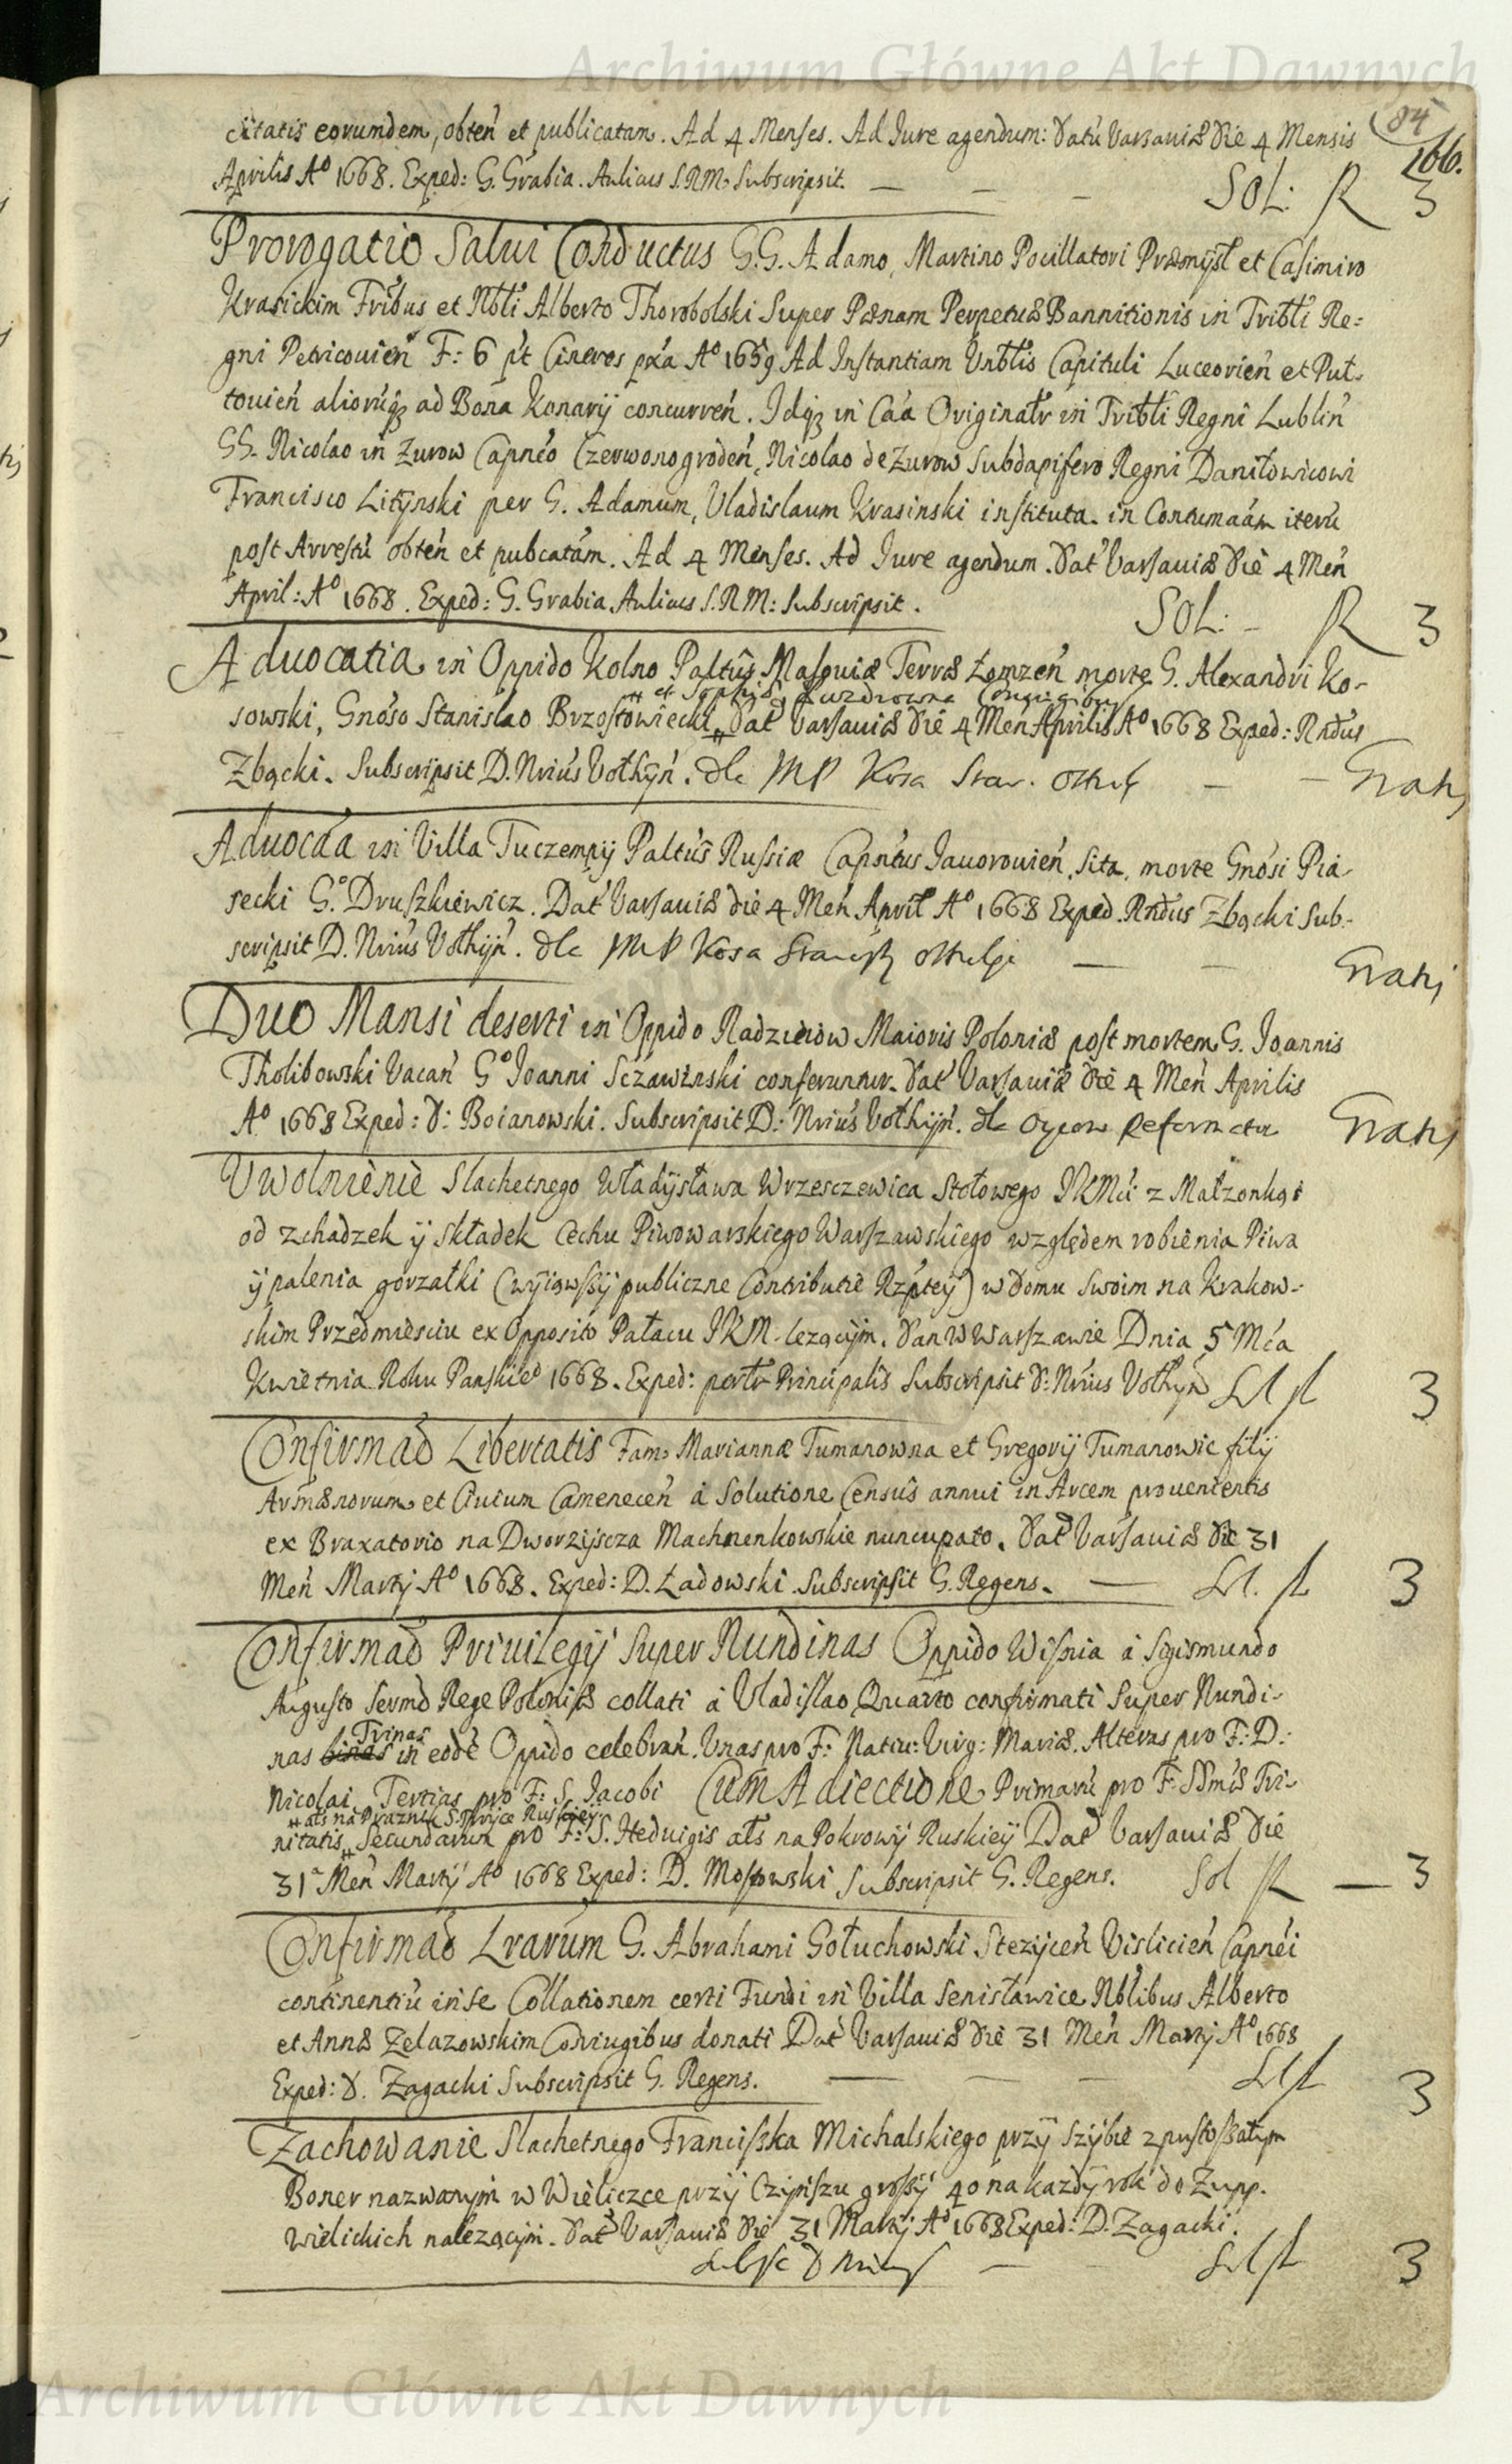 Archiwum Główne Akt Dawnych
84
166.
citatis eorundem, obteń et publicatam. Ad 4 Menses. Ad Iure agendum: Datū Varsauiæ Die 4 Mensis
Aprilis Aº 1668. Exped: G. Grabia. Aulicus S.R.M. Subscripsit. — — — SOL: R 3
Prorogatio Salui Conductus G.G. Adamo, Martino Pocillatori Præmysl et Casimiro
Krasickim Fribus et Nbli Alberto Thorobolski Super Pænam Perpetuæ Bannitionis in Tribli Re:
gni Petricouień F: 6 pt Cineres pxa Aº 1659 Ad Instantiam Vnblis Capituli Luceorień et Pul-
touień aliorūq3 ad Bona Konary concurreń. Idq3 in Caa Originalr in Tribli Regni Lublin
GG. Nicolao in Zurow Capneo Czerwonogrodeń, Nicolao de Zurow Subdapifero Regni Daniłowicowi
Francisco Lityński per G. Adamum, Vladislaum Krasinski instituta. in Contumaām iterū
post Arrestū obteń et pubcatām. Ad 4 Menses. Ad Iure agendum. Dat Varsauiæ Die 4 Meń
April: Aº 1668. Exped: G. Grabia Aulicus S.R.M: Subscripsit. SOL: - R 3
Aduocatia in Oppido Kolno Paltūs Masouiæ Terræ Łomzeń morte G. Alexandri Ko-
et Sophiæ Ruzdrowna Coniugibus
sowski, Gnoso Stanislao Brzostowiecki Dat Varsauiæ Die 4 Meń Aprilis Aº 1668 Exped: Rndus
Zbącki. Subscripsit D. Nrius Vołhyń. dla MP Kosa Star. — Gratis
Aduocaā in Villa Tuczempy Paltūs Russiæ Capnťus Iauorouień, sita, morte Gnosi Pia-
secki Gº Druszkiewicz. Dat Varsauiæ die 4 Meń April Aº 1668 Exped. Rndus Zbącki Sub-
scripsit D. Nrius Vołhyń. dla MP Kosa — — Gratis
Duo Mansi deserti in Oppido Radzieiow Maioris Poloniæ post mortem G. Joannis
Tholibowski Vacań Gº Joanni Sczawinski conferuntur. Dat Varsauiæ Die 4 Meń Aprilis
Aº 1668 Exped: D: Boianowski. Subscripsit D: Nrius Vołhyń. dla Oycow Reformatow Gratis
Vwolnienie Slachetnego Władysława Wrzesczewica Stołowego JKMci z Małzonką
od zchadzek y składek Cechu Piwowarskiego Warszawskiego względem robienia Piwa
y palenia gorzałki (wyiąwszy publiczne Contributie Rzptey) w domu swoim na Krakow-
skim Przedmiesciu ex Opposito Pałacu JKM. lezącym. Dan w Warszawie Dnia 5 Mca
Kwietnia Roku Panskieº 1668. Exped: perłr Principalis Subscripsit D: Nrius Vołhyń Sol R 3
Confirmaō Libertatis Fam. Mariannæ Tumanowna et Gregorij Tumanowic filij
Armænorum et Ciuium Cameneceń á Solutione Censūs annui in Arcem prouenientis
ex Braxatorio na Dworzyscza Machnenkowskie nuncupato. Dat Varsauiæ Die 31
Meń Martij Aº 1668. Exped: D. Ładowski Subscripsit G. Regens. — Sol. R 3
Confirmaō Priuilegij Super Nundinas Oppido Wisnia á Sigismundo
Augusto Sermo Rege Poloniæ collati á Vladislao Quarto confirmati Super Nundi-
Trinas
nas binas in eodē Oppido celebrań. Vnas pro F: Natiu: Virg: Mariæ. Alteras pro F: D:
Nicolai Tertias pro F: S. Jacobi Cum Adiectione Primarū pro F: SSmis Tri-
als na Praznik S. Troyce Ruskiey
nitatis, Secundarum pro F: S. Heduigis ałs na Pokrowy Ruskiey Dat Varsauiæ Die
31 Meń Martij Aº 1668 Exped: D. Mostowski Subscripsit G. Regens. Sol R — 3
Confirmaō Lrarum G. Abrahami Gołuchowski Stezyceń Vislicień Capnei
continentiū in se Collationem certi Fundi in Villa Senisławice Nblibus Alberto
et Annæ Zelazowskim Coniugibus donati Dat Varsauiæ Die 31 Meń Martij Aº 1668
Exped: D. Zagacki Subscripsit G. Regens. — — — Sol R 3
Zachowanie Slachetnego Franciszka Michalskiego przy Szybie zpustoszałym
Boner nazwanym w Wieliczce przy Czynszu groszy 40 na kazdy rok do Zupp.
wielickich nalezącym. Dat Varsauiæ Die 31 Martij Aº 1668 Exped: D. Zagacki.
Subsc D Nrius — — Sol R 3
Archiwum Główne Akt Dawnych